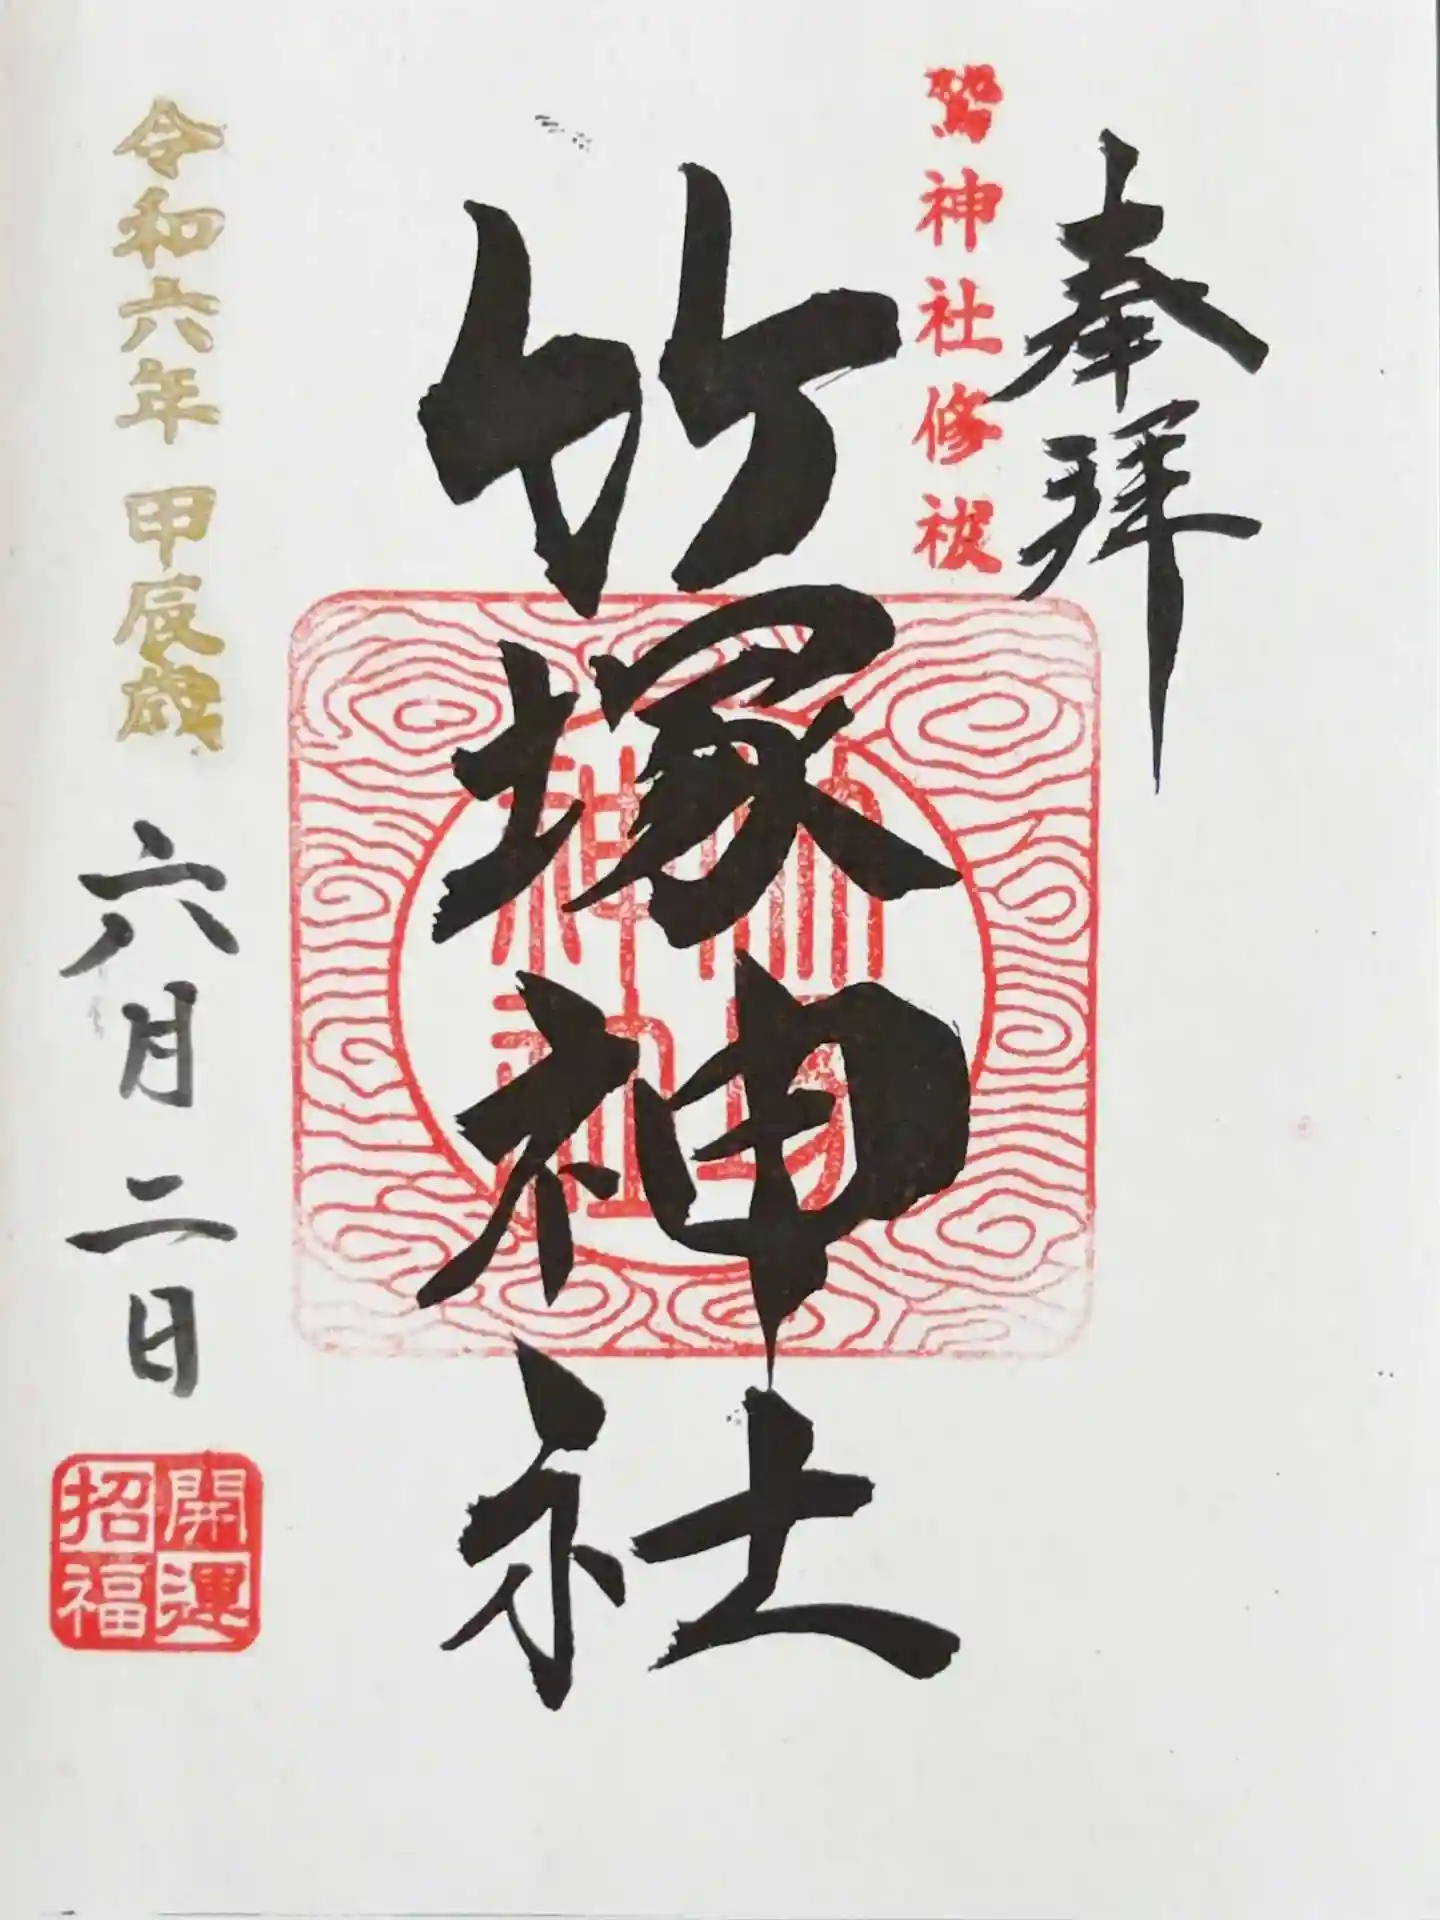 奉拝
鷲神社修祓
竹塚神社
竹塚
神社
令和六年 甲辰歳
六月二日
開運
招福